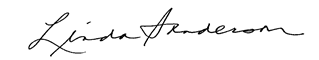 Linda Anderson